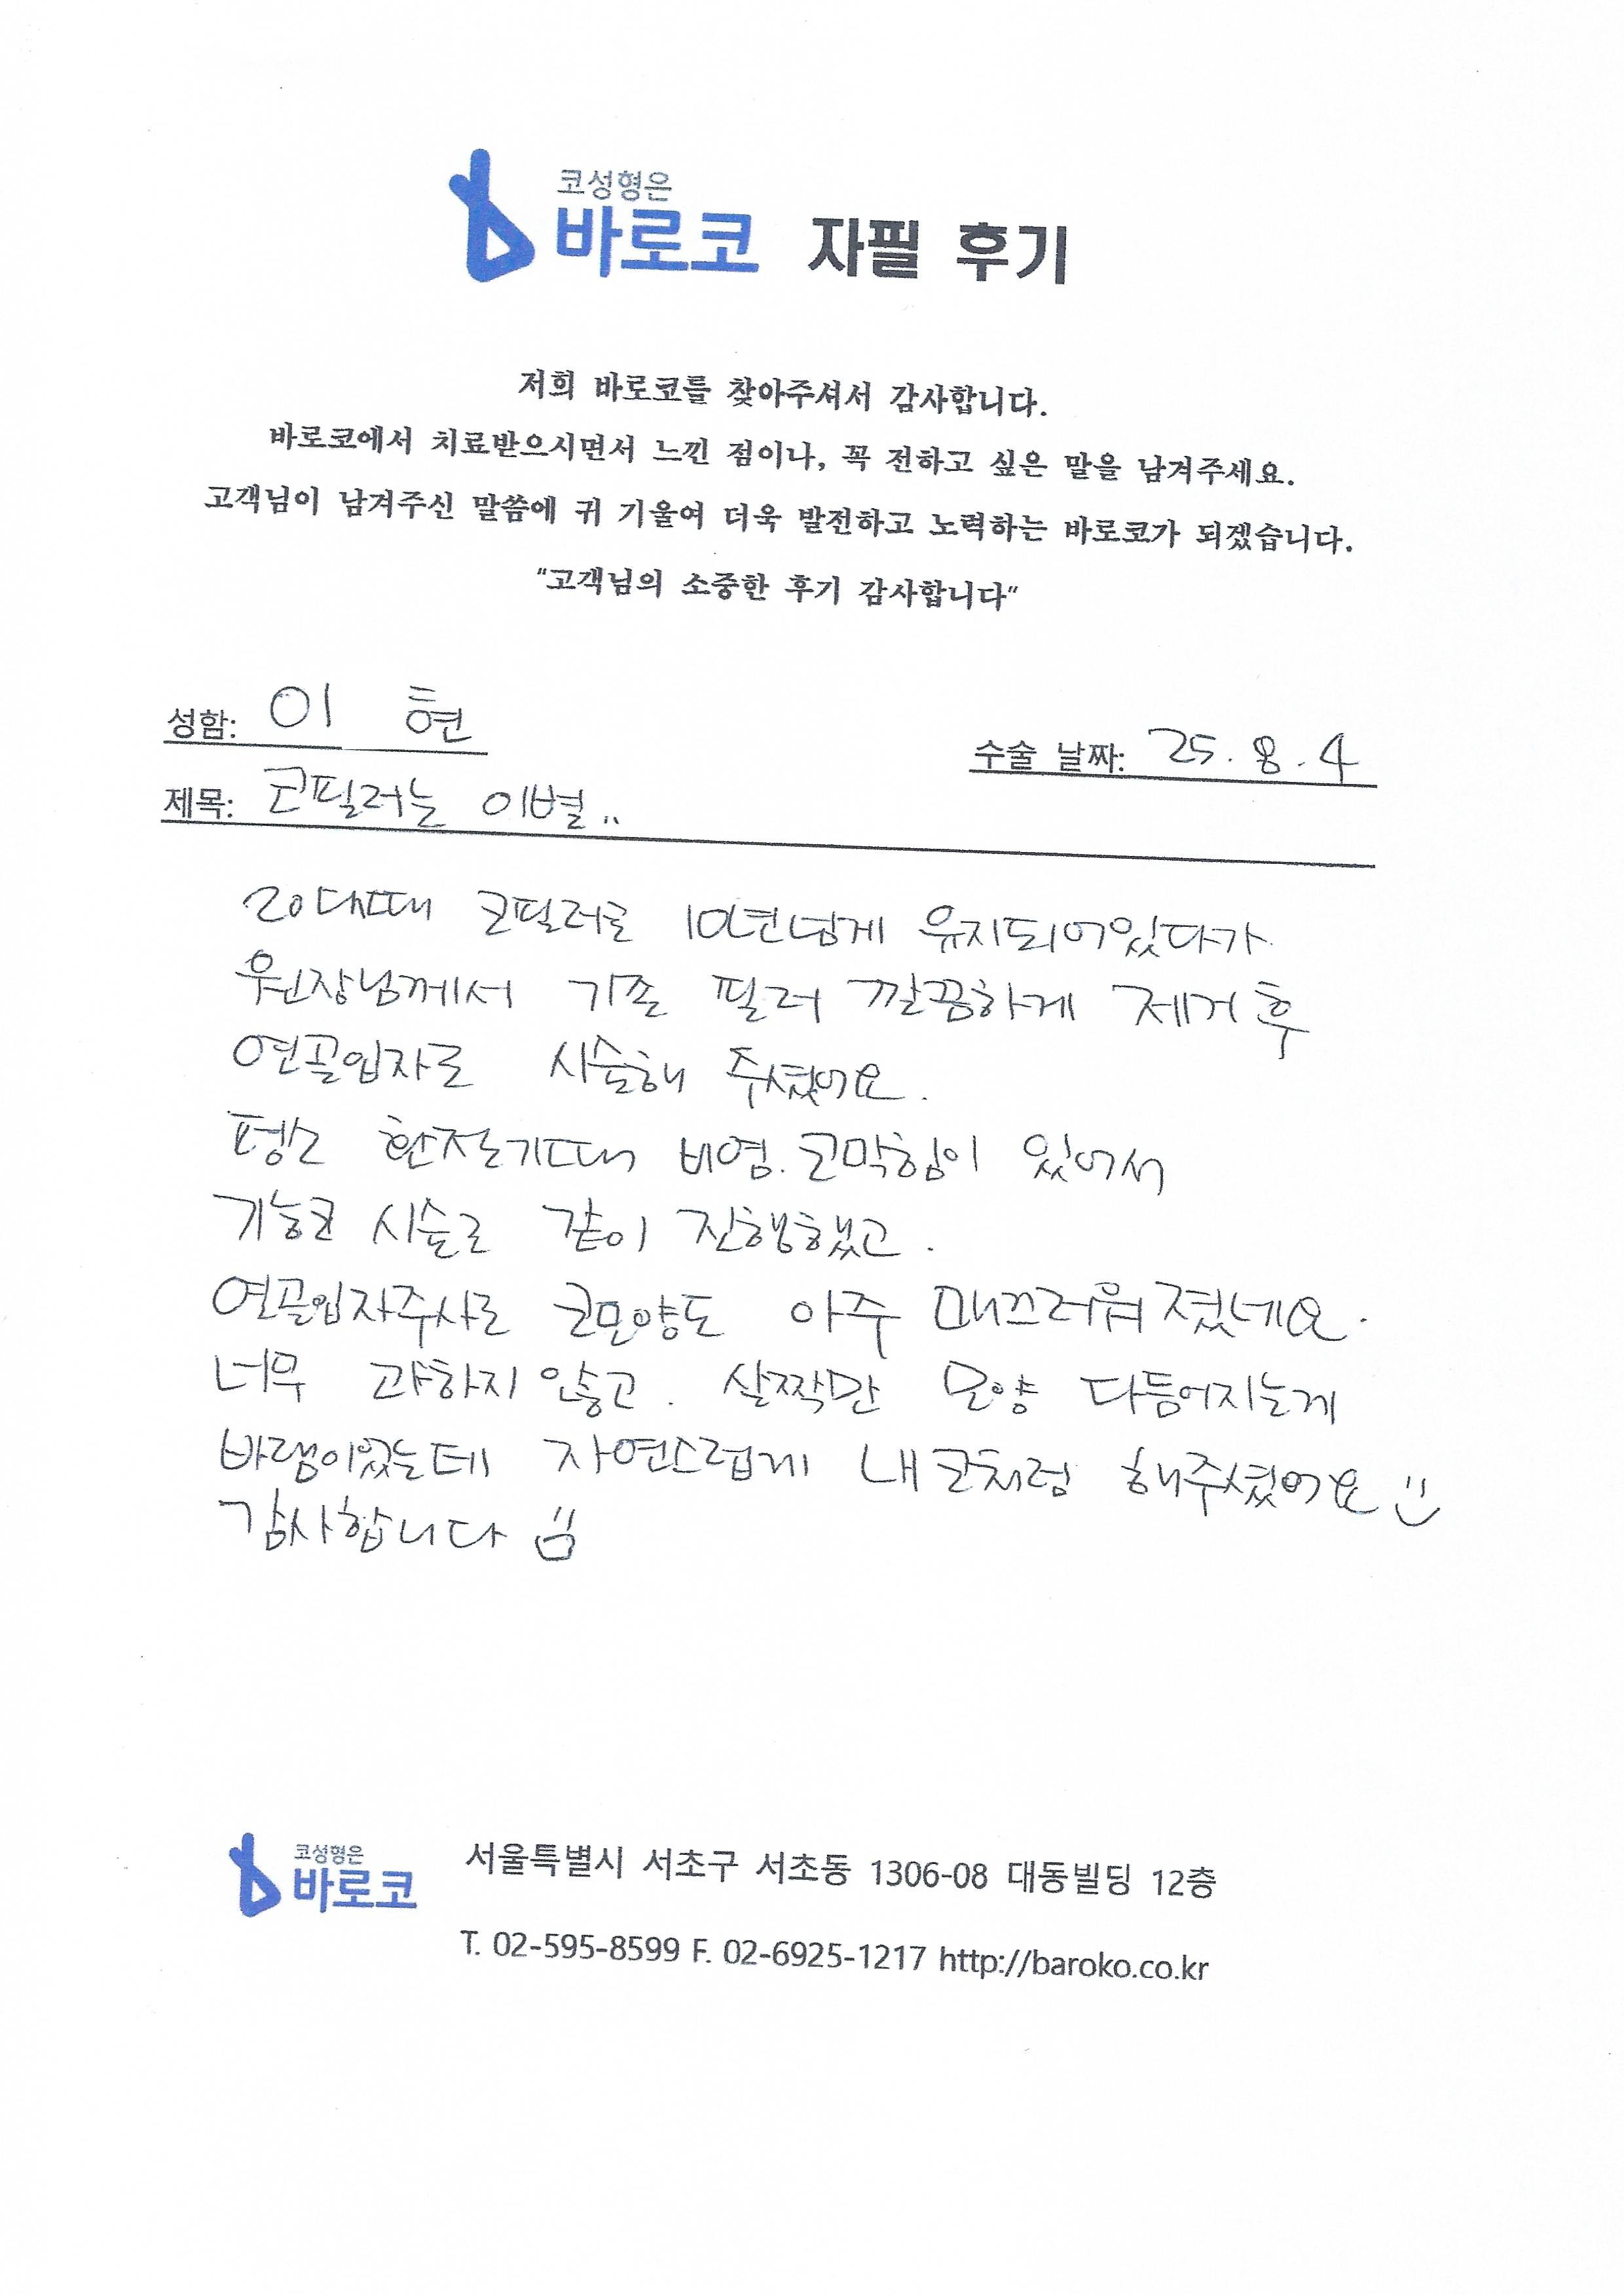 코성형은
바로코 자필 후기
저희 바로코를 찾아주셔서 감사합니다.
바로코에서 치료받으시면서 느낀 점이나, 꼭 전하고 싶은 말을 남겨주세요.
고객님이 남겨주신 말씀에 귀 기울여 더욱 발전하고 노력하는 바로코가 되겠습니다.
“고객님의 소중한 후기 감사합니다”
성함: 이 현
수술 날짜: 25. 8. 4
제목: 코필러는 이별..
20대때 코필러로 10년넘게 유지되어있다가
원장님께서 기존 필러 깔끔하게 제거 후
연골입자로 시술해 주셨어요.
평소 환절기때 비염. 코막힘이 있어서
기능코 시술로 같이 진행했고.
연골입자주사로 코모양도 아주 매끄러워 졌네요.
너무 과하지 않고. 살짝만 모양 다듬어지는게
바램이었는데 자연스럽게 내 코처럼 해주셨어요
감사합니다
코성형은
바로코
서울특별시 서초구 서초동 1306-08 대동빌딩 12층
T. 02-595-8599 F. 02-6925-1217 http://baroko.co.kr